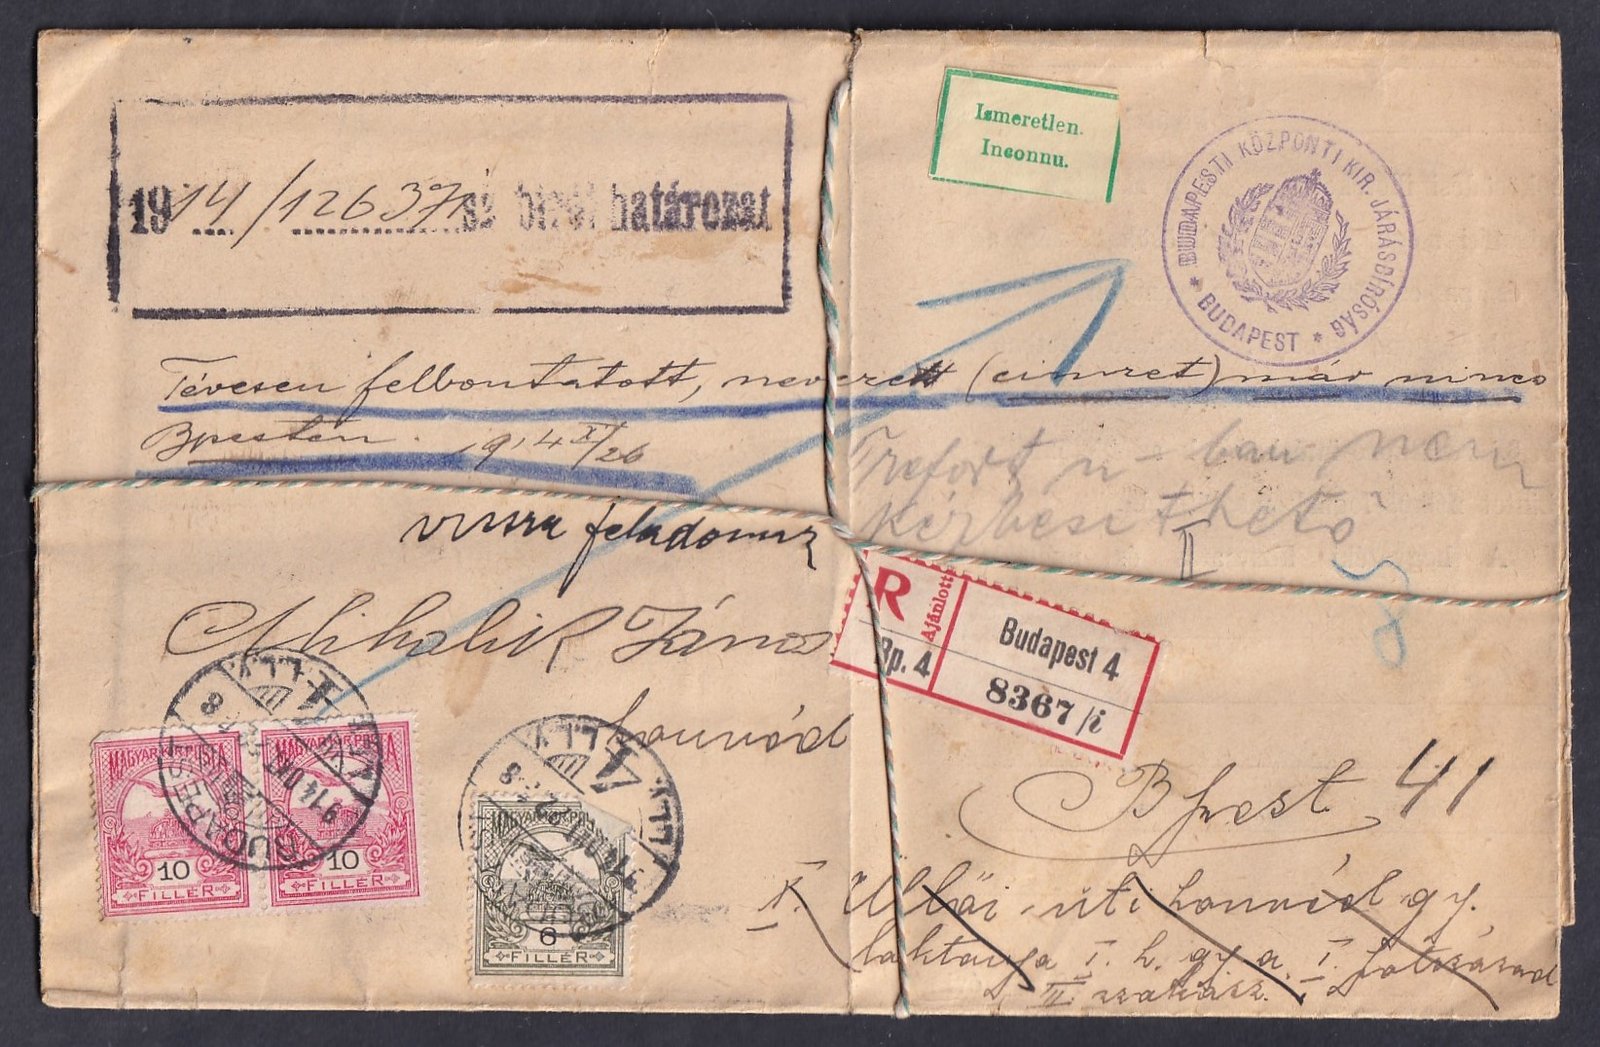 Ismeretlen.
Inconnu.
BUDAPESTI KÖZPONTI KIR. JÁRÁSBÍRÓSÁG
* BUDAPEST *
1914/126371 sz birói határozat
Tévesen felbontatott, nevezett (cimzet) már nincs
Bpesten. 1914 XI/26
Trefort u-ban nem
kézbesithető
II
vissza feladónak
R
Ajánlott
Bp. 4
Budapest 4
8367/i
Mihalik János
honvéd
Bpest 41
I. Üllői-úti honvéd gy.
laktanya I. h. gy. e. I. pótszázad
II. szakasz.
MAGYAR KIR. POSTA
10
FILLÉR
MAGYAR KIR. POSTA
10
FILLÉR
MAGYAR KIR. POSTA
6
FILLÉR
BUDAPEST